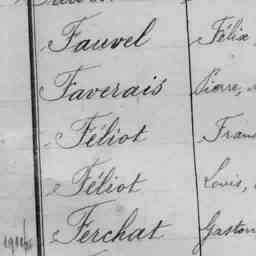 Fauvel Félix
Faverais Pierre,
Féliot Fran
Féliot Louis,
Ferchat Gaston